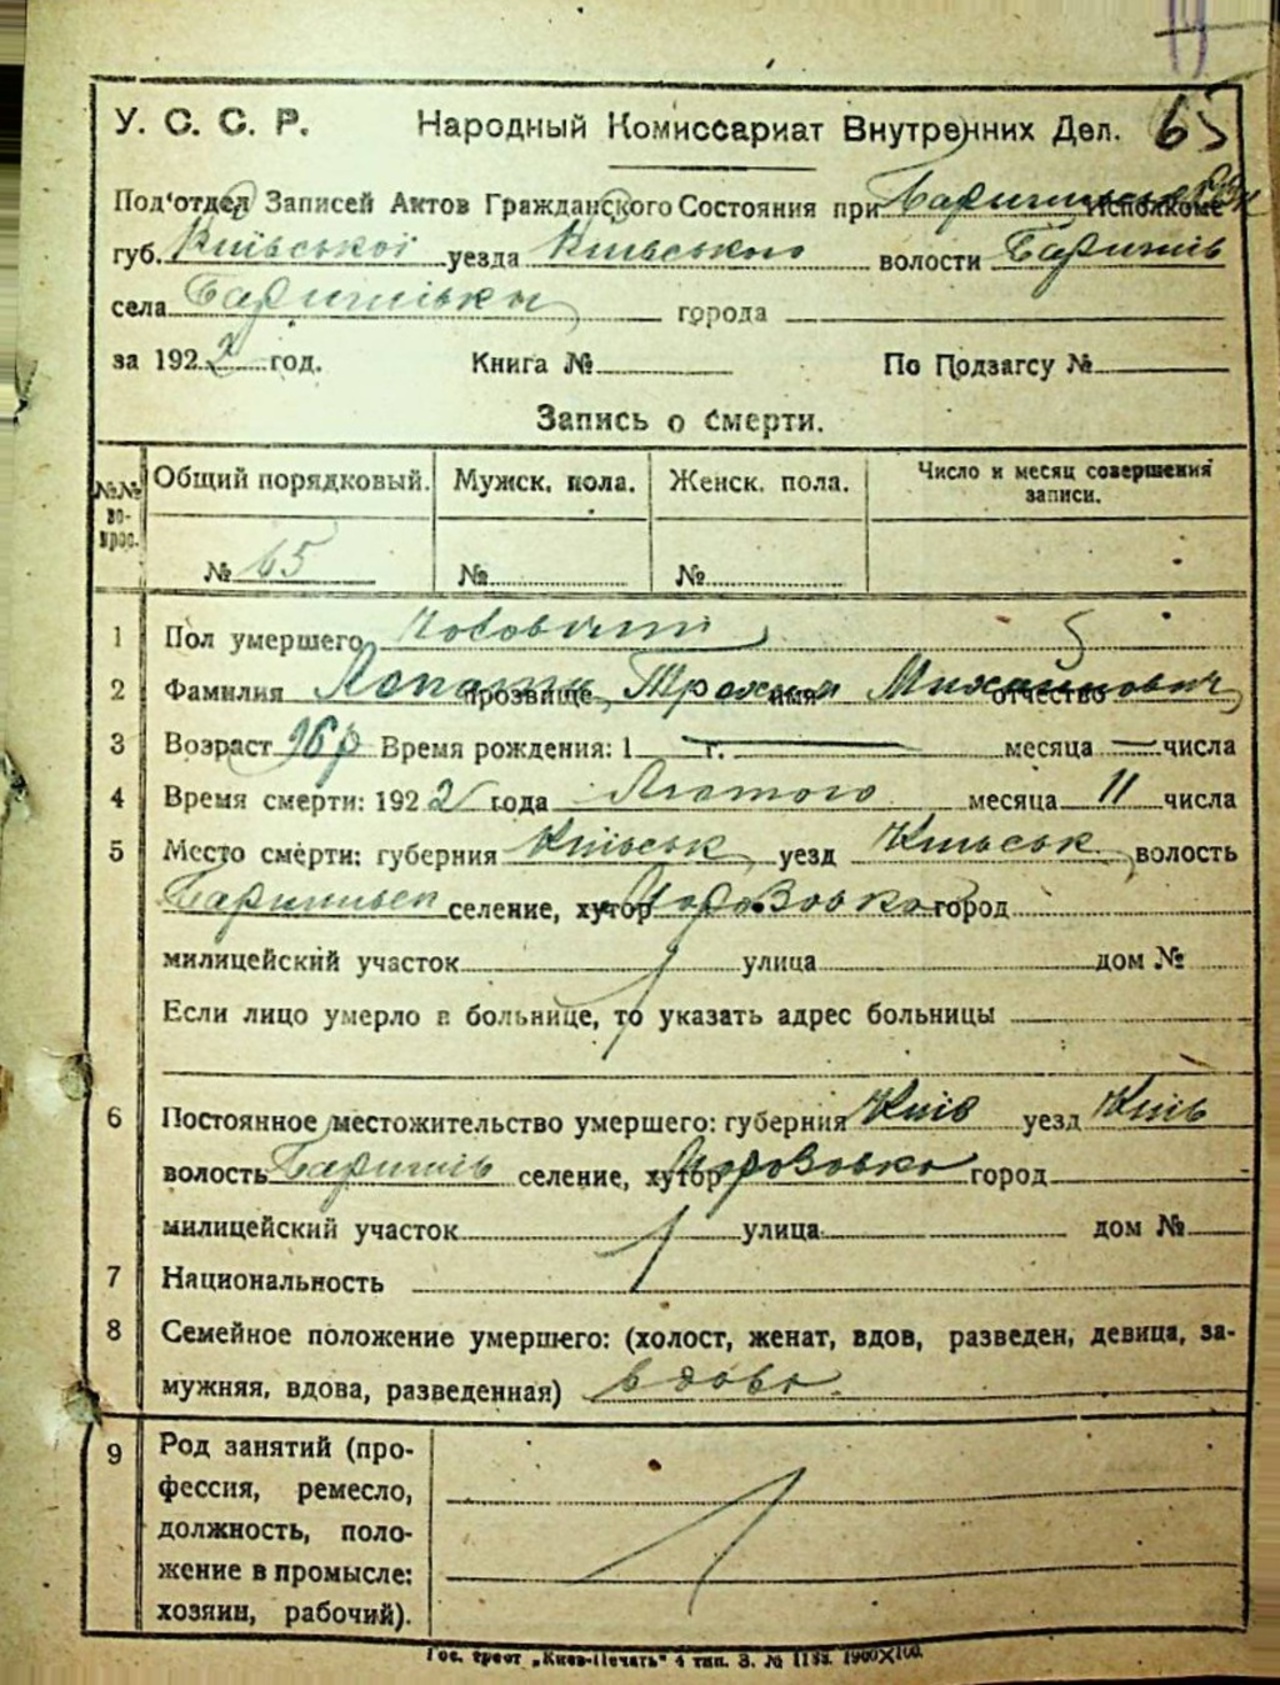 У. С. С. Р. Народный Комиссариат Внутренних Дел. 65
Под'отдел Записей Актов Гражданского Состояния при Исполкоме
губ. Київської уезда Київського волости Баришів
села Баришівки города
за 1922 год. Книга № По Подзагсу №
Запись о смерти.
№№ во- прос. Общий порядковый. Мужск. пола. Женск. пола. Число и месяц совершения записи.
№ 65 № №
1 Пол умершего Чоловичий
2 Фамилия прозвище Трохим имя Михайлович отчество
3 Возраст 96 р Время рождения: 1 г. — месяца — числа
4 Время смерти: 1922 года Лютого месяца 11 числа
5 Место смерти: губерния Київськ уезд Київськ волость
селение, хутор город
милицейский участок улица дом №
Если лицо умерло в больнице, то указать адрес больницы
6 Постоянное местожительство умершего: губерния Київ уезд Київ
волость Баришів селение, хутор город
милицейский участок улица дом №
7 Национальность
8 Семейное положение умершего: (холост, женат, вдов, разведен, девица, за-
мужняя, вдова, разведенная)
9 Род занятий (про-
фессия, ремесло,
должность, поло-
жение в промысле:
хозяин, рабочий).
Гос. трест „Киев-Печать" 4 тип. З. №